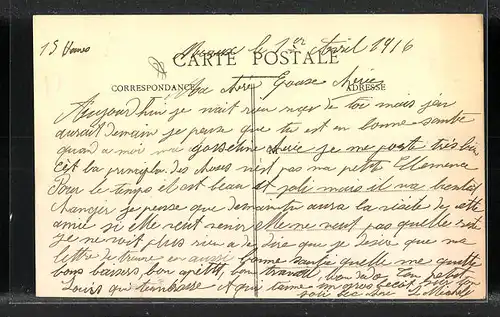 15 Hures
Meaux le 1er Avril 1916
CARTE POSTALE
CORRESPONDANCE ADRESSE
Ma chère Gosse chérie
Aujourd'hui je nait rien reçu de toi mais j'en
durait demain je pense que tu est en bonne santé
quand a moi ma gosseline chérie je me porte très bien
C'ét la principale des choses n'est pas ma petite Clémence
Pour le temps il est beau et joli mais il va bientôt
changer je pense que demain tu aura la visite de cette
amie si elle veut venir Me ne veut pas quelle
je ne voit plus rien a te dire que je desire que ma
lettre te trouve en aussi bonne santé quelle me quitte
bons baisers, bon apétit, bon travail, bon dodo, Ton petit
Louis qui t'embrasse A qui t'aime un gros becot pour ton